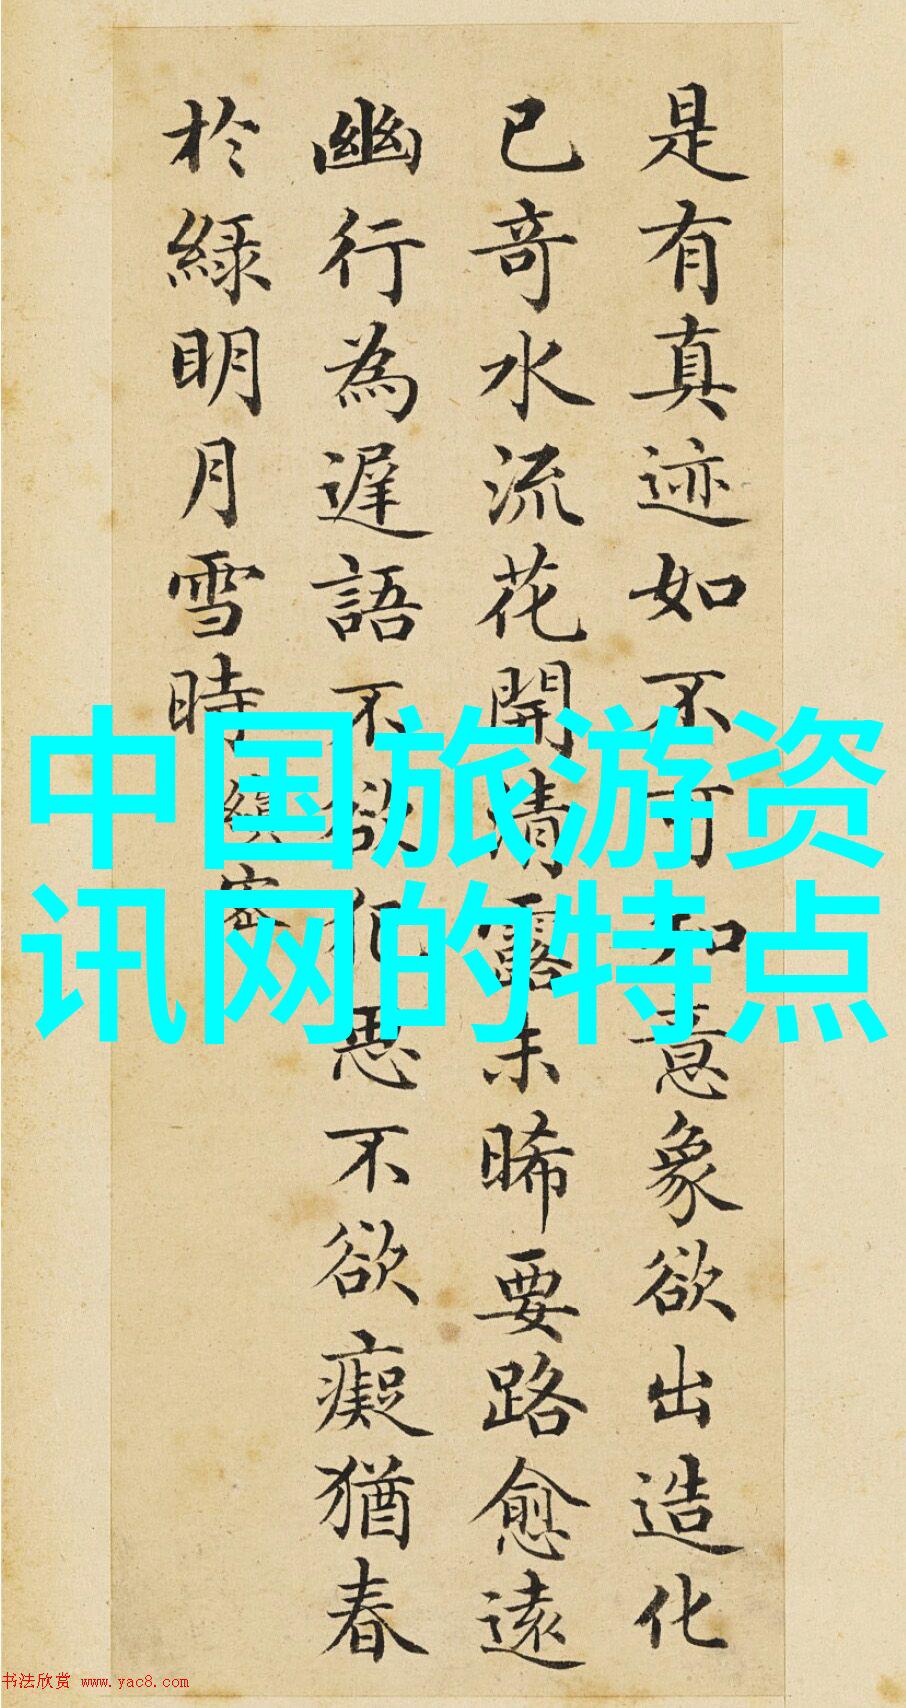 是有真迹如不可知意象欲出造化
已奇水流花開清露未晞要路愈遠
幽行為遲語不欲犯思不欲癡猶春
於綠明月雪時縝密
中国旅游资
讯网的特点
书法欣赏 www.yac8.com